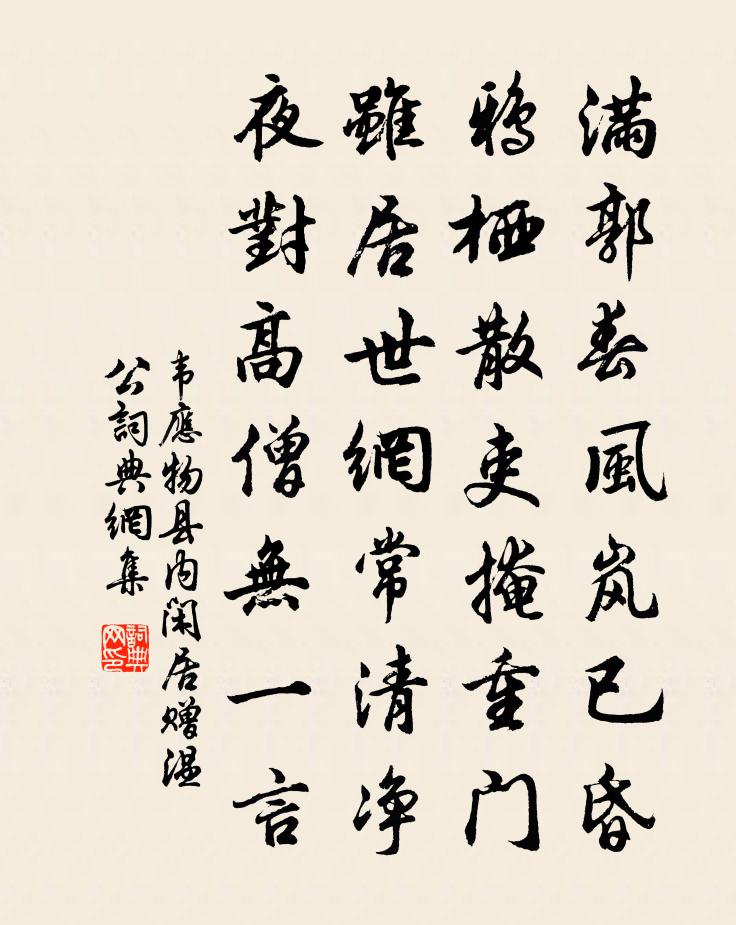 满郭春風岚已昏
鴉栖散吏掩重门
雖居世網常清净
夜對高僧無一言
韦應物县内闲居赠温
公詞典網集
詞典網印